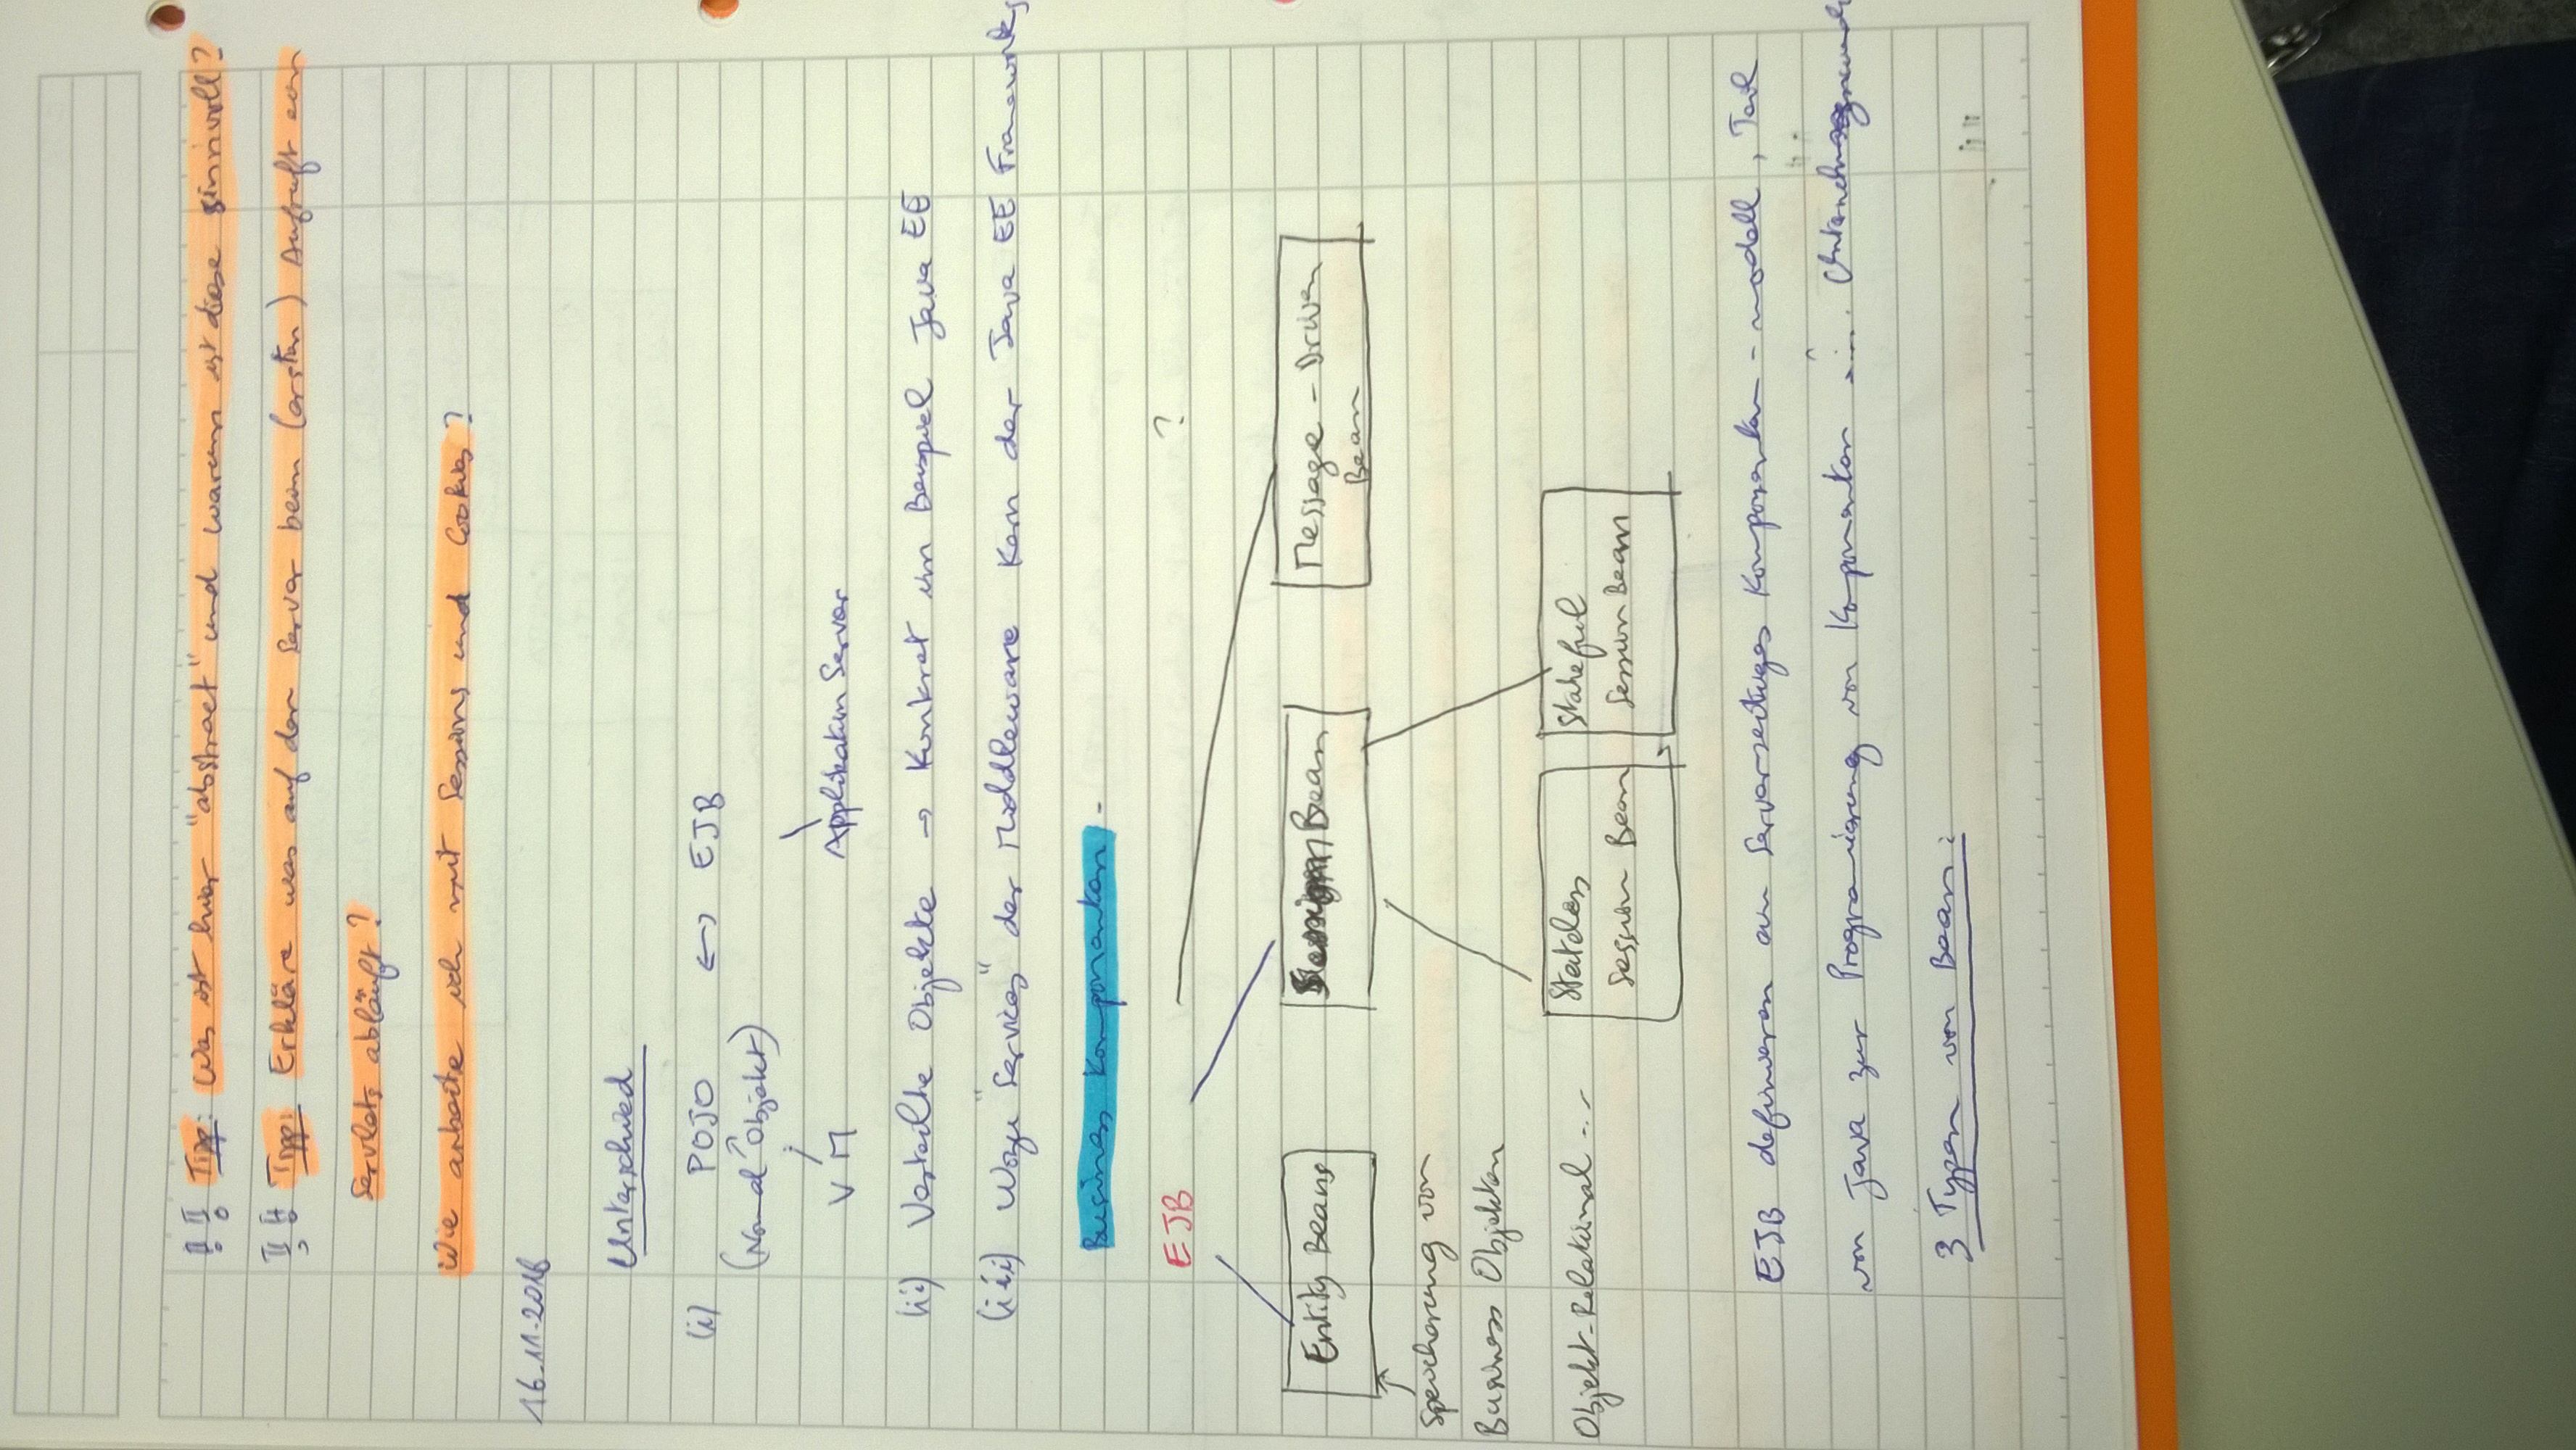 !! Tipp: Was ist hier "abstract" und warum ist diese sinnvoll?
!! Tipp: Erkläre was auf der Server beim (ersten) Aufruft ein
Servlets abläuft?
Wie arbeite ich mit Sessions und Cookies?
16.11.2016
Unterschied
(i) POJO ↔ EJB
(Normal Objekt)
VM Applikation Server
(ii) Verteilte Objekte → Konkret im Beispiel Java EE
(iii) Wozu "Services" der Middleware Kern der Java EE Frameworks
Business Komponenten -
EJB ?
Entity Beans Session Bean Message - Driven
Bean
Speicherung von
Business Objekten
Objekt-Relational ...
Stateless Stateful
Session Bean Session Bean
EJB definieren ein Serverseitiges Komponenten - modell, Teil
von Java zur Programmierung von Komponenten
3 Typen von Bean: